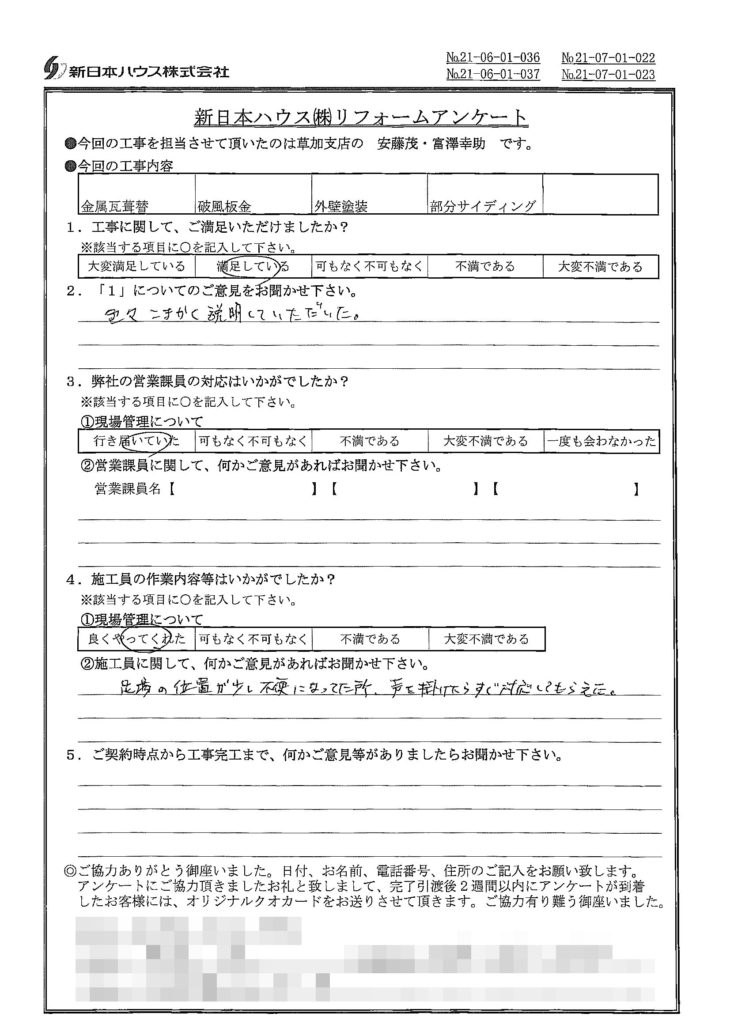 新日本ハウス株式会社
№21-06-01-036 №21-07-01-022
№21-06-01-037 №21-07-01-023
新日本ハウス㈱リフォームアンケート
●今回の工事を担当させて頂いたのは草加支店の 安藤茂・富澤幸助 です。
●今回の工事内容
金属瓦葺替 破風板金 外壁塗装 部分サイディング
1．工事に関して、ご満足いただけましたか？
※該当する項目に○を記入して下さい。
大変満足している 満足している 可もなく不可もなく 不満である 大変不満である
2．「1」についてのご意見をお聞かせ下さい。
色々こまかく説明していただいた。
3．弊社の営業課員の対応はいかがでしたか？
※該当する項目に○を記入して下さい。
①現場管理について
行き届いていた 可もなく不可もなく 不満である 大変不満である 一度も会わなかった
②営業課員に関して、何かご意見があればお聞かせ下さい。
営業課員名【 】【 】【 】
4．施工員の作業内容等はいかがでしたか？
※該当する項目に○を記入して下さい。
①現場管理について
良くやってくれた 可もなく不可もなく 不満である 大変不満である
②施工員に関して、何かご意見があればお聞かせ下さい。
足場の位置が少し不便になってた所、声を掛けたらすぐ対応してもらえた。
5．ご契約時点から工事完工まで、何かご意見等がありましたらお聞かせ下さい。
◎ご協力ありがとう御座いました。日付、お名前、電話番号、住所のご記入をお願い致します。
アンケートにご協力頂きましたお礼と致しまして、完了引渡後2週間以内にアンケートが到着
したお客様には、オリジナルクオカードをお送りさせて頂きます。ご協力有り難う御座いました。